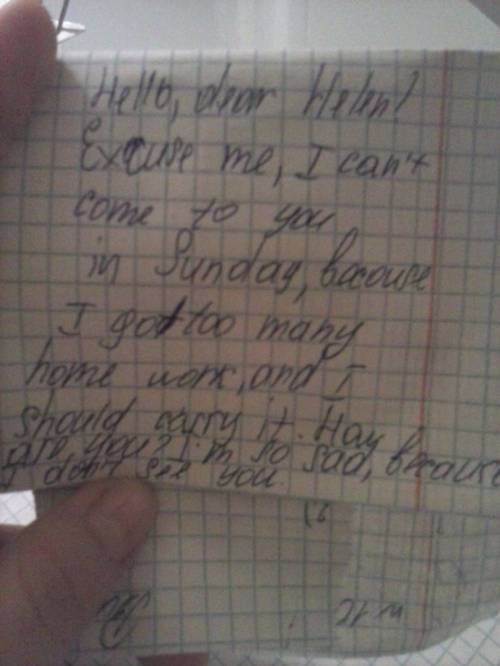 Hello, dear Helen!
Excuse me, I can't
come to you
in Sunday, becouse
I got too many
home work, and I
should carry it. Hay
are you? I'm so sad, because
I don't see you.